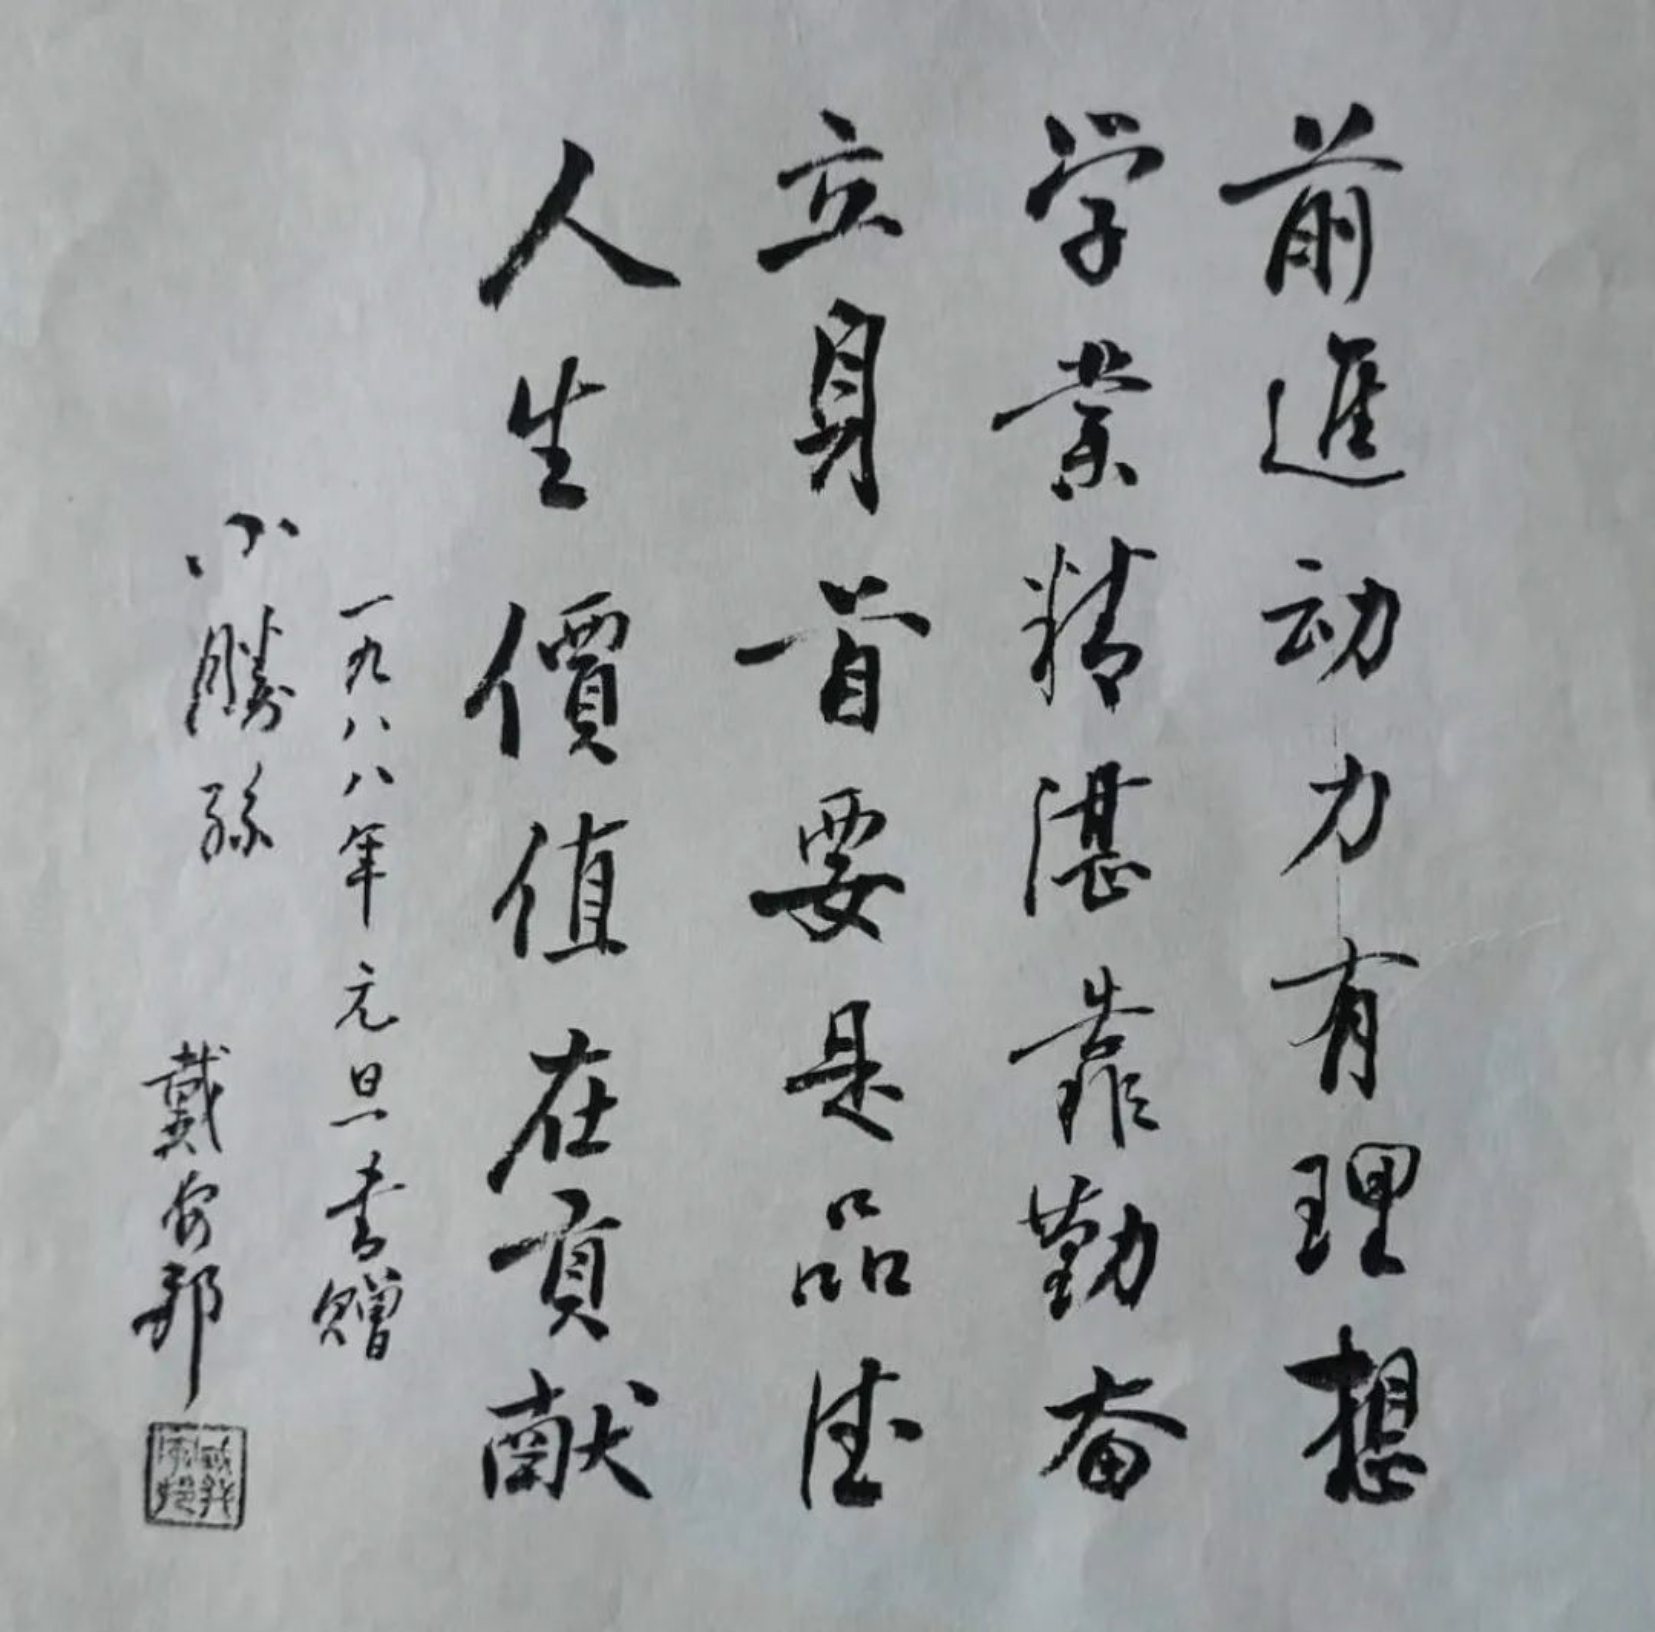 前進动力有理想
学業精湛靠勤奋
立身首要是品德
人生價值在貢献
一九八八年元旦书贈
小勝孫
戴安邦